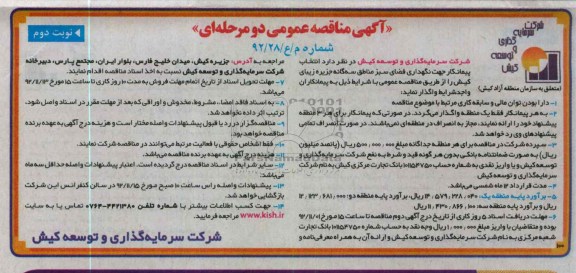 «آگهی مناقصه عمومی دو مرحله‌ای»
شماره م/ع/۹۲/۲۸
نوبت دوم
شرکت
سرمایه
گذاری
و
توسعه
کیش
(متعلق به سازمان منطقه آزاد کیش)
شرکت سرمایه‌گذاری و توسعه کیش در نظر دارد انتخاب
پیمانکار جهت نگهداری فضای سبز مناطق سه‌گانه جزیره زیبای
کیش را از طریق مناقصه عمومی با شرایط ذیل به پیمانکاران
واجدشرایط واگذار نماید:
۱- دارا بودن توان مالی و سابقه کاری مرتبط با موضوع مناقصه
۲- به هر پیمانکار فقط یک منطقه واگذار می‌گردد. در صورتی که پیمانکار برای هر ۳ منطقه
پیشنهاد خود را ارائه نمایند، مجاز به انصراف در منطقه‌ای نمی‌باشند. در صورت انصراف تمامی
پیشنهادهای وی رد خواهد شد.
۳- سپرده شرکت در مناقصه برای هر منطقه جداگانه مبلغ ۵۰۰,۰۰۰,۰۰۰ ریال (پانصد میلیون
ریال) به صورت ضمانتنامه بانکی بدون هر گونه قید و شرط به نفع شرکت سرمایه‌گذاری و
توسعه کیش و یا واریز نقدی به شماره حساب بانک تجارت مرکزی کیش به نام شرکت
سرمایه‌گذاری و توسعه کیش
۴- مدت قرارداد ۱۲ ماه شمسی می‌باشد.
۵- برآورد پایه منطقه یک: ریال، برآورد پایه منطقه دو:
ریال و برآورد پایه منطقه سه: ریال
۶- مهلت دریافت اسناد ۵ روز کاری از تاریخ درج آگهی دوم مناقصه تا ساعت ۱۵ مورخ ۹۲/۱۱/۰۱
بوده و متقاضیان با واریز مبلغ ۱,۰۰۰,۰۰۰ ریال وجه نقد به حساب شماره بانک تجارت
شعبه مرکزی به نام شرکت سرمایه‌گذاری و توسعه کیش و ارائه آن به همراه معرفی‌نامه و
مراجعه به آدرس: جزیره کیش، میدان خلیج فارس، بلوار ایران، مجتمع پارس، دبیرخانه
شرکت سرمایه‌گذاری و توسعه کیش نسبت به اخذ اسناد مناقصه اقدام نمایند.
۷- مهلت تحویل اسناد از تاریخ اتمام مهلت فروش به مدت ۱۰ روز کاری تا ساعت ۱۵ مورخ ۹۲/۱۱/۱۳
می‌باشد.
۸- به اسناد فاقد امضا، مشروط، مخدوش و اوراقی که بعد از مهلت مقرر در اسناد واصل شود،
ترتیب اثر داده نخواهد شد.
۹- مناقصه‌گزار در رد یا قبول پیشنهادات واصله مختار است و هزینه درج آگهی به عهده برنده
مناقصه خواهد بود.
۱۰- فقط اشخاص حقوقی با فعالیت مرتبط می‌توانند در مناقصه شرکت نمایند.
۱۱- هزینه درج آگهی به عهده برنده مناقصه می‌باشد.
۱۲- سایر شرایط در اسناد مناقصه درج گردیده است. اعتبار پیشنهادات واصله حداقل سه ماه
می‌باشد.
۱۳- پیشنهادات واصله راس ساعت ۱۰ صبح مورخ ۹۲/۱۱/۱۵ در سالن کنفرانس این شرکت
بازگشایی خواهد شد.
۱۴- جهت کسب اطلاعات بیشتر با شماره تلفن ۴۴۲۱۴۸۰-۰۷۶۴ تماس یا به سایت
www.kish.ir مراجعه فرمایید.
شرکت سرمایه‌گذاری و توسعه کیش